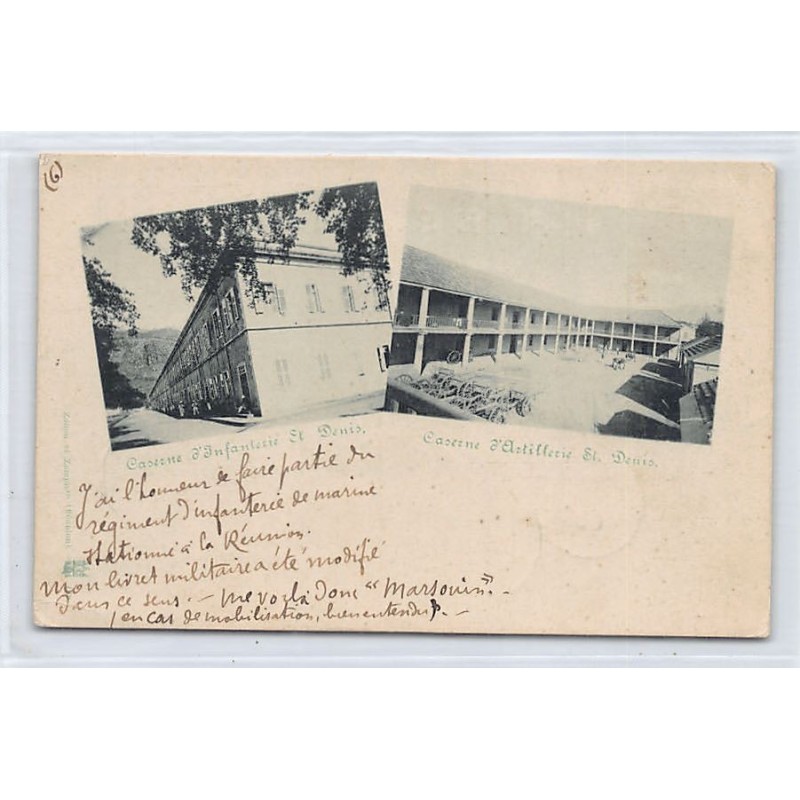 (6)
Caserne d'Infanterie St Denis.
Caserne d'Artillerie St. Denis.
J'ai l'honneur de faire partie du
régiment d'infanterie de marine
stationné à la Réunion.
Mon livret militaire a été modifié
dans ce sens. — me voilà donc "Marsouin". —
(en cas de mobilisation, bien entendu). —
(Réunion)